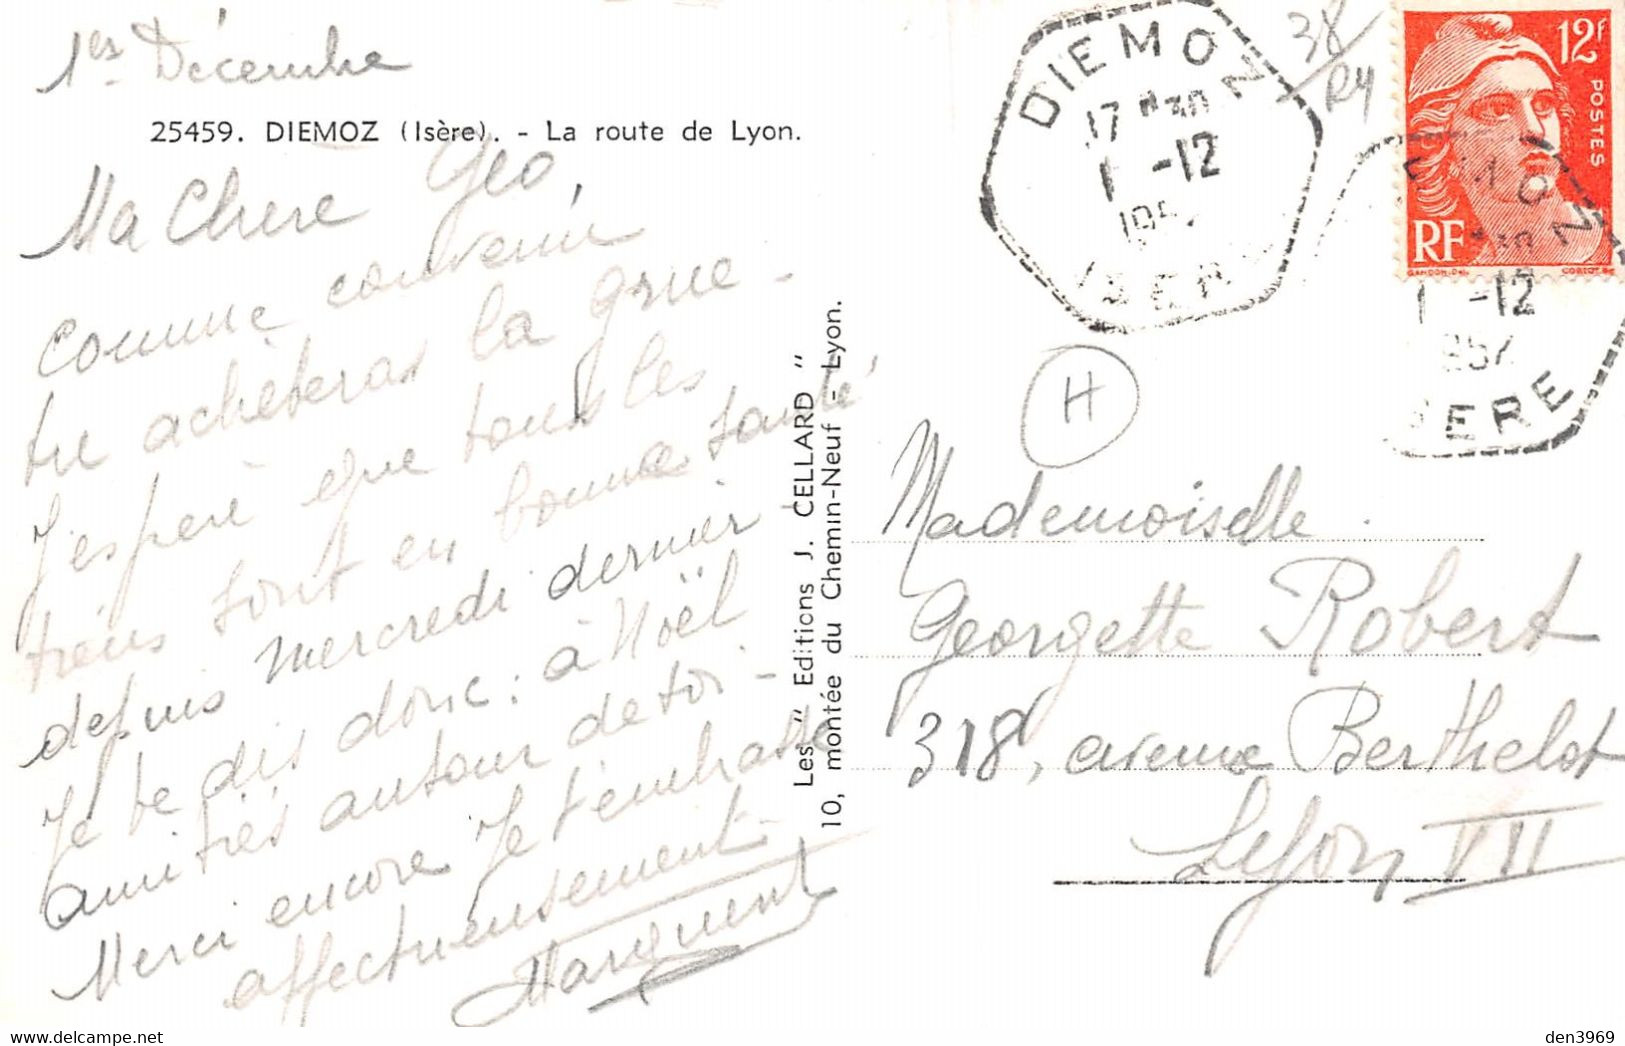 1er Décembre
25459. DIEMOZ (Isère). - La route de Lyon.
Ma Chère Géo,
comme convenu
tu achèteras la grue -
J'espère que tous les
tiens sont en bonne santé
depuis mercredi dernier -
Je te dis donc : à Noël
amitiés autour de toi -
Merci encore Je t'embrasse
affectueusement
Les " Editions J. CELLARD "
10, montée du Chemin-Neuf - Lyon.
DIEMOZ
17 H30
1 -12
195
ISERE
38
R4
12F
POSTES
RF
GANDON.Del.
CORTOT.Sc
EMOZ
30
1 -12
1952
SERE
H
Mademoiselle
Georgette Robert
318, avenue Berthelot
Lyon VII
den3969